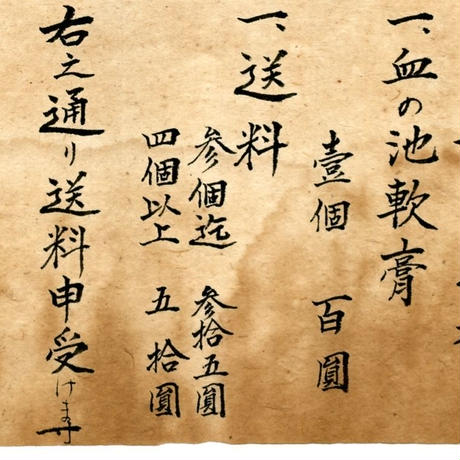 一、血の池軟膏
壹個 百圓
一、送料
参個迄 参拾五圓
四個以上 五拾圓
右之通り送料申受けます